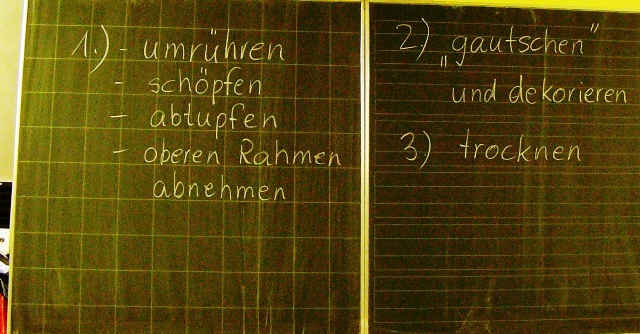 1.) - umrühren
- schöpfen
- abtupfen
- oberen Rahmen
abnehmen
2) „gautschen"
und dekorieren
3) trocknen